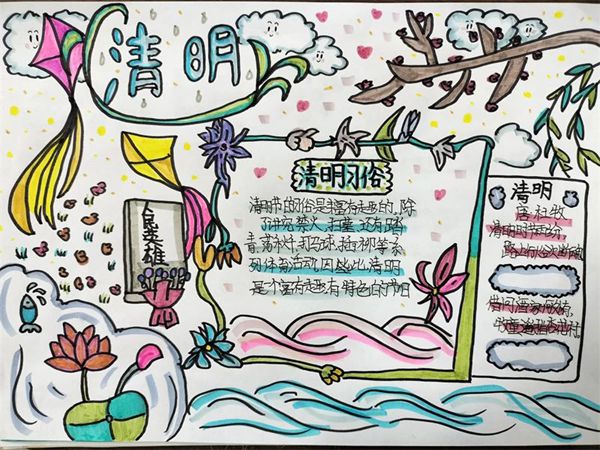 清明
人民英雄
清明习俗
清明节的习俗是丰富有趣的,除
了讲究禁火、扫墓,还有踏
青、荡秋千、打马球、插柳等系
列体育活动,因此,清明
是个富有趣有特色的节日
清明
唐·杜牧
清明时节雨纷纷,
路上行人欲断魂
借问酒家何处有,
牧童遥指杏花村.